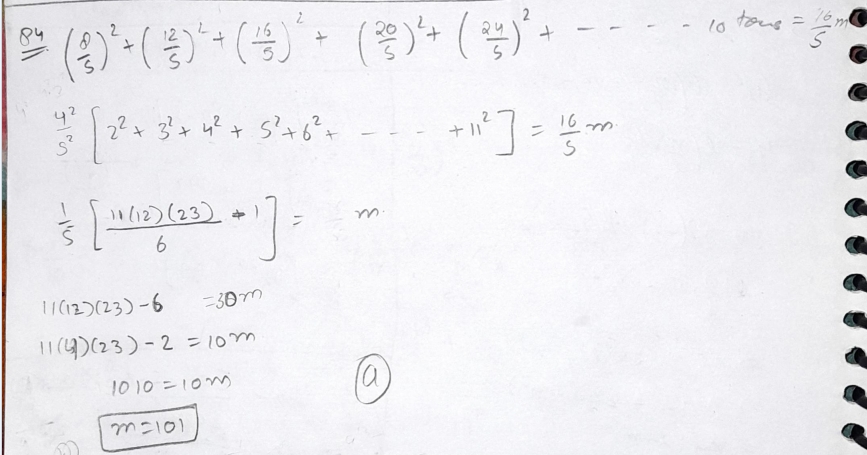 84 (8/5)² + (12/5)² + (16/5)² + (20/5)² + (24/5)² + - - - - 10 = 16/5 m
4²/5² [2² + 3² + 4² + 5² + 6² + - - - - + 11²] = 16/5 m
1/5 [11(12)(23)/6 - 1] = m
11(12)(23) - 6 = 30m
11(4)(23) - 2 = 10m
1010 = 10m
a
m = 101